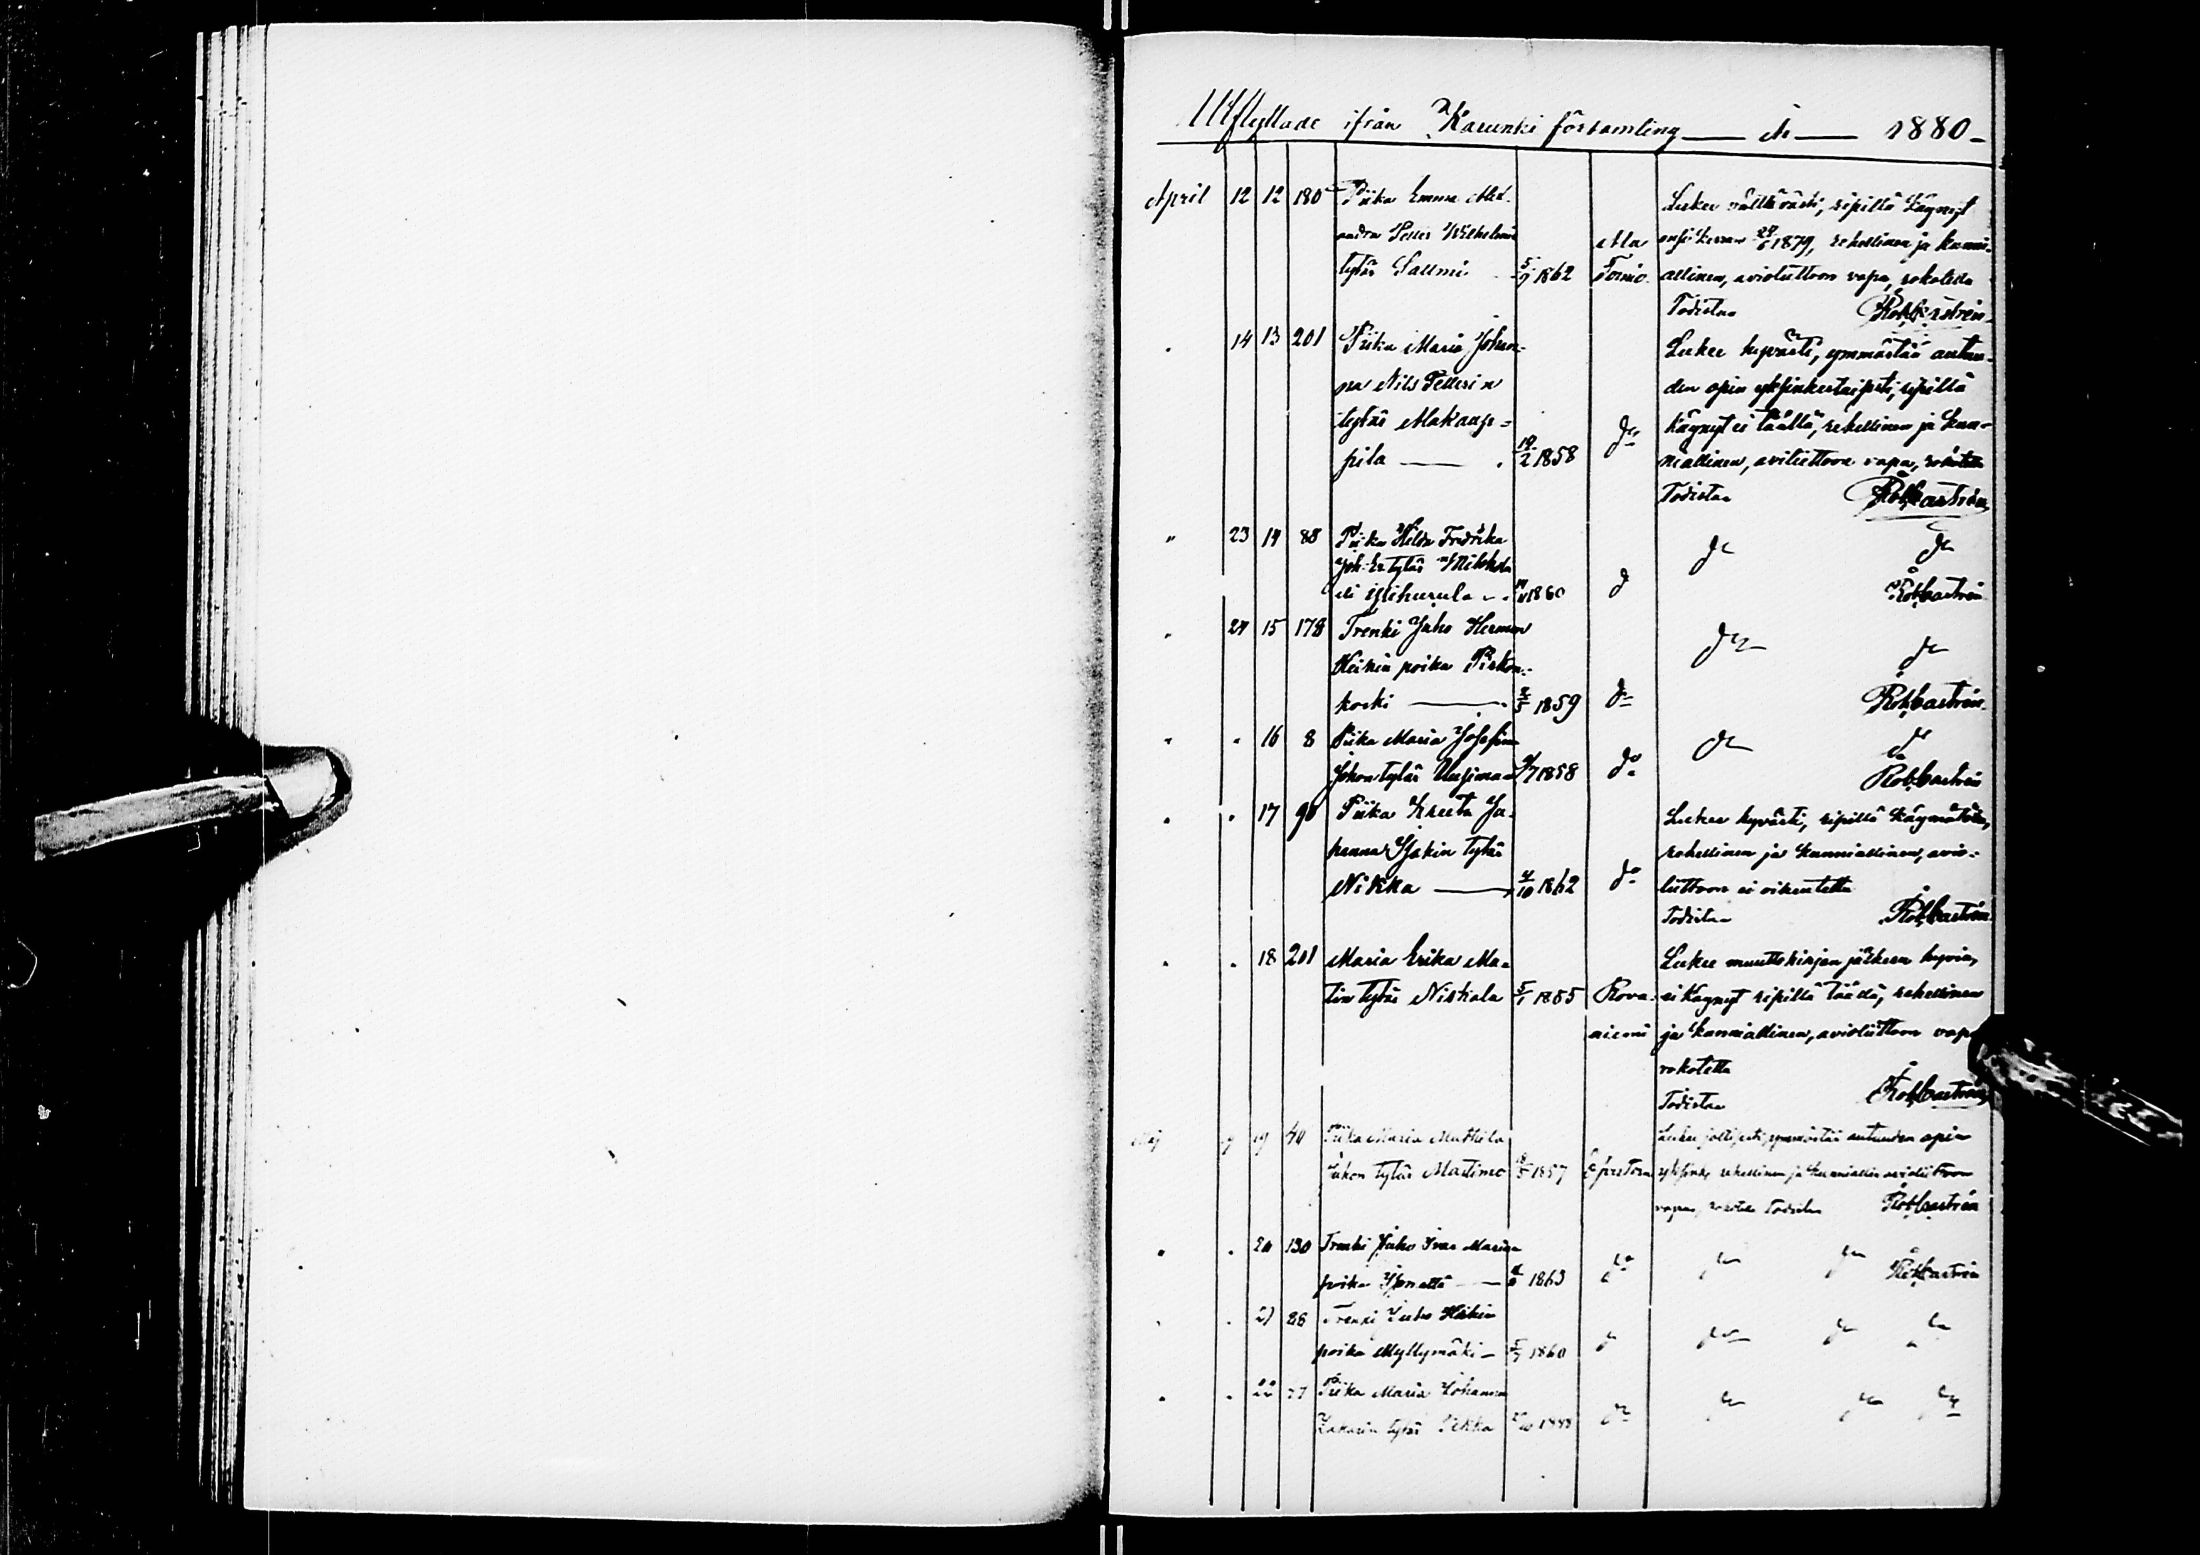 Utflyttade ifrån Karunki församling år 1880
April 12 12 180 Piika Emma Alek-
sandra Petter Wilhelmin
tytär Sallmi 5/9 1862 Ala Tornio
Lukee välttävästi, ripillä käynyt
ensi kerran 24/6 1879, rehellinen ja kunni-
allinen, avioliittoon vapa, rokotedu
Todistaa Rob. Castrén
14 13 201 Piika Maria Johan-
na Nils Petterin
tytär Makaup-
pila 19/2 1858 do
Lukee hyvästi, ymmärtää autuu-
den opin yksinkertaisesti, ripillä
käynyt ei täällä, rehellinen ja kun-
niallinen, avioliittoon vapa, rokotettu
Todistaa Rob. Castrén
" 23 14 88 Piika Hilda Fredrika
Joh. Er. tytär
1860 d do do
Rob. Castrén
" 24 15 178 Trenki Juho Herman
Heikin poika Piskon-
koski 1859 do do do
Rob. Castrén
" " 16 8 Piika Maria Josefina
Johan tytär Uusimaa /7 1858 do do do
Rob. Castrén
" " 17 90 Piika Kreeta Jo-
hanna Isakin tytär
Nikka 4/10 1862 do
Lukee hyvästi, ripillä käymätöin,
rehellinen ja kunniallinen, avio-
liittoon ei oikeutettu
Todistaa Rob. Castrén
" " 18 201 Maria Erika Ma-
tin tytär Niskala 5/1 1855 Rova-
niemi
Lukee muuttokirjan jälkeen hyvin,
ei käynyt ripillä täällä, rehellinen
ja kunniallinen, avioliittoon vapa
rokotettu
Todistaa Rob. Castrén
Maj 9 19 40 Piika Maria Mathila
Johon tytär Martimo 1857
Lukee ymmärtää autuuden opin
yksink, rehellinen ja kunniallin avioliittoon
vapa, Todistaa Rob. Castrén
" " 20 130 Trenki Juho Ivar Maria
poika 1863 do do do Rob. Castrén
" " 21 86 Trenki Juho Heikin
poika Myllymäki 1860 d do do do
" " 22 Piika Maria Johanna
Zakarin tytär do do do do